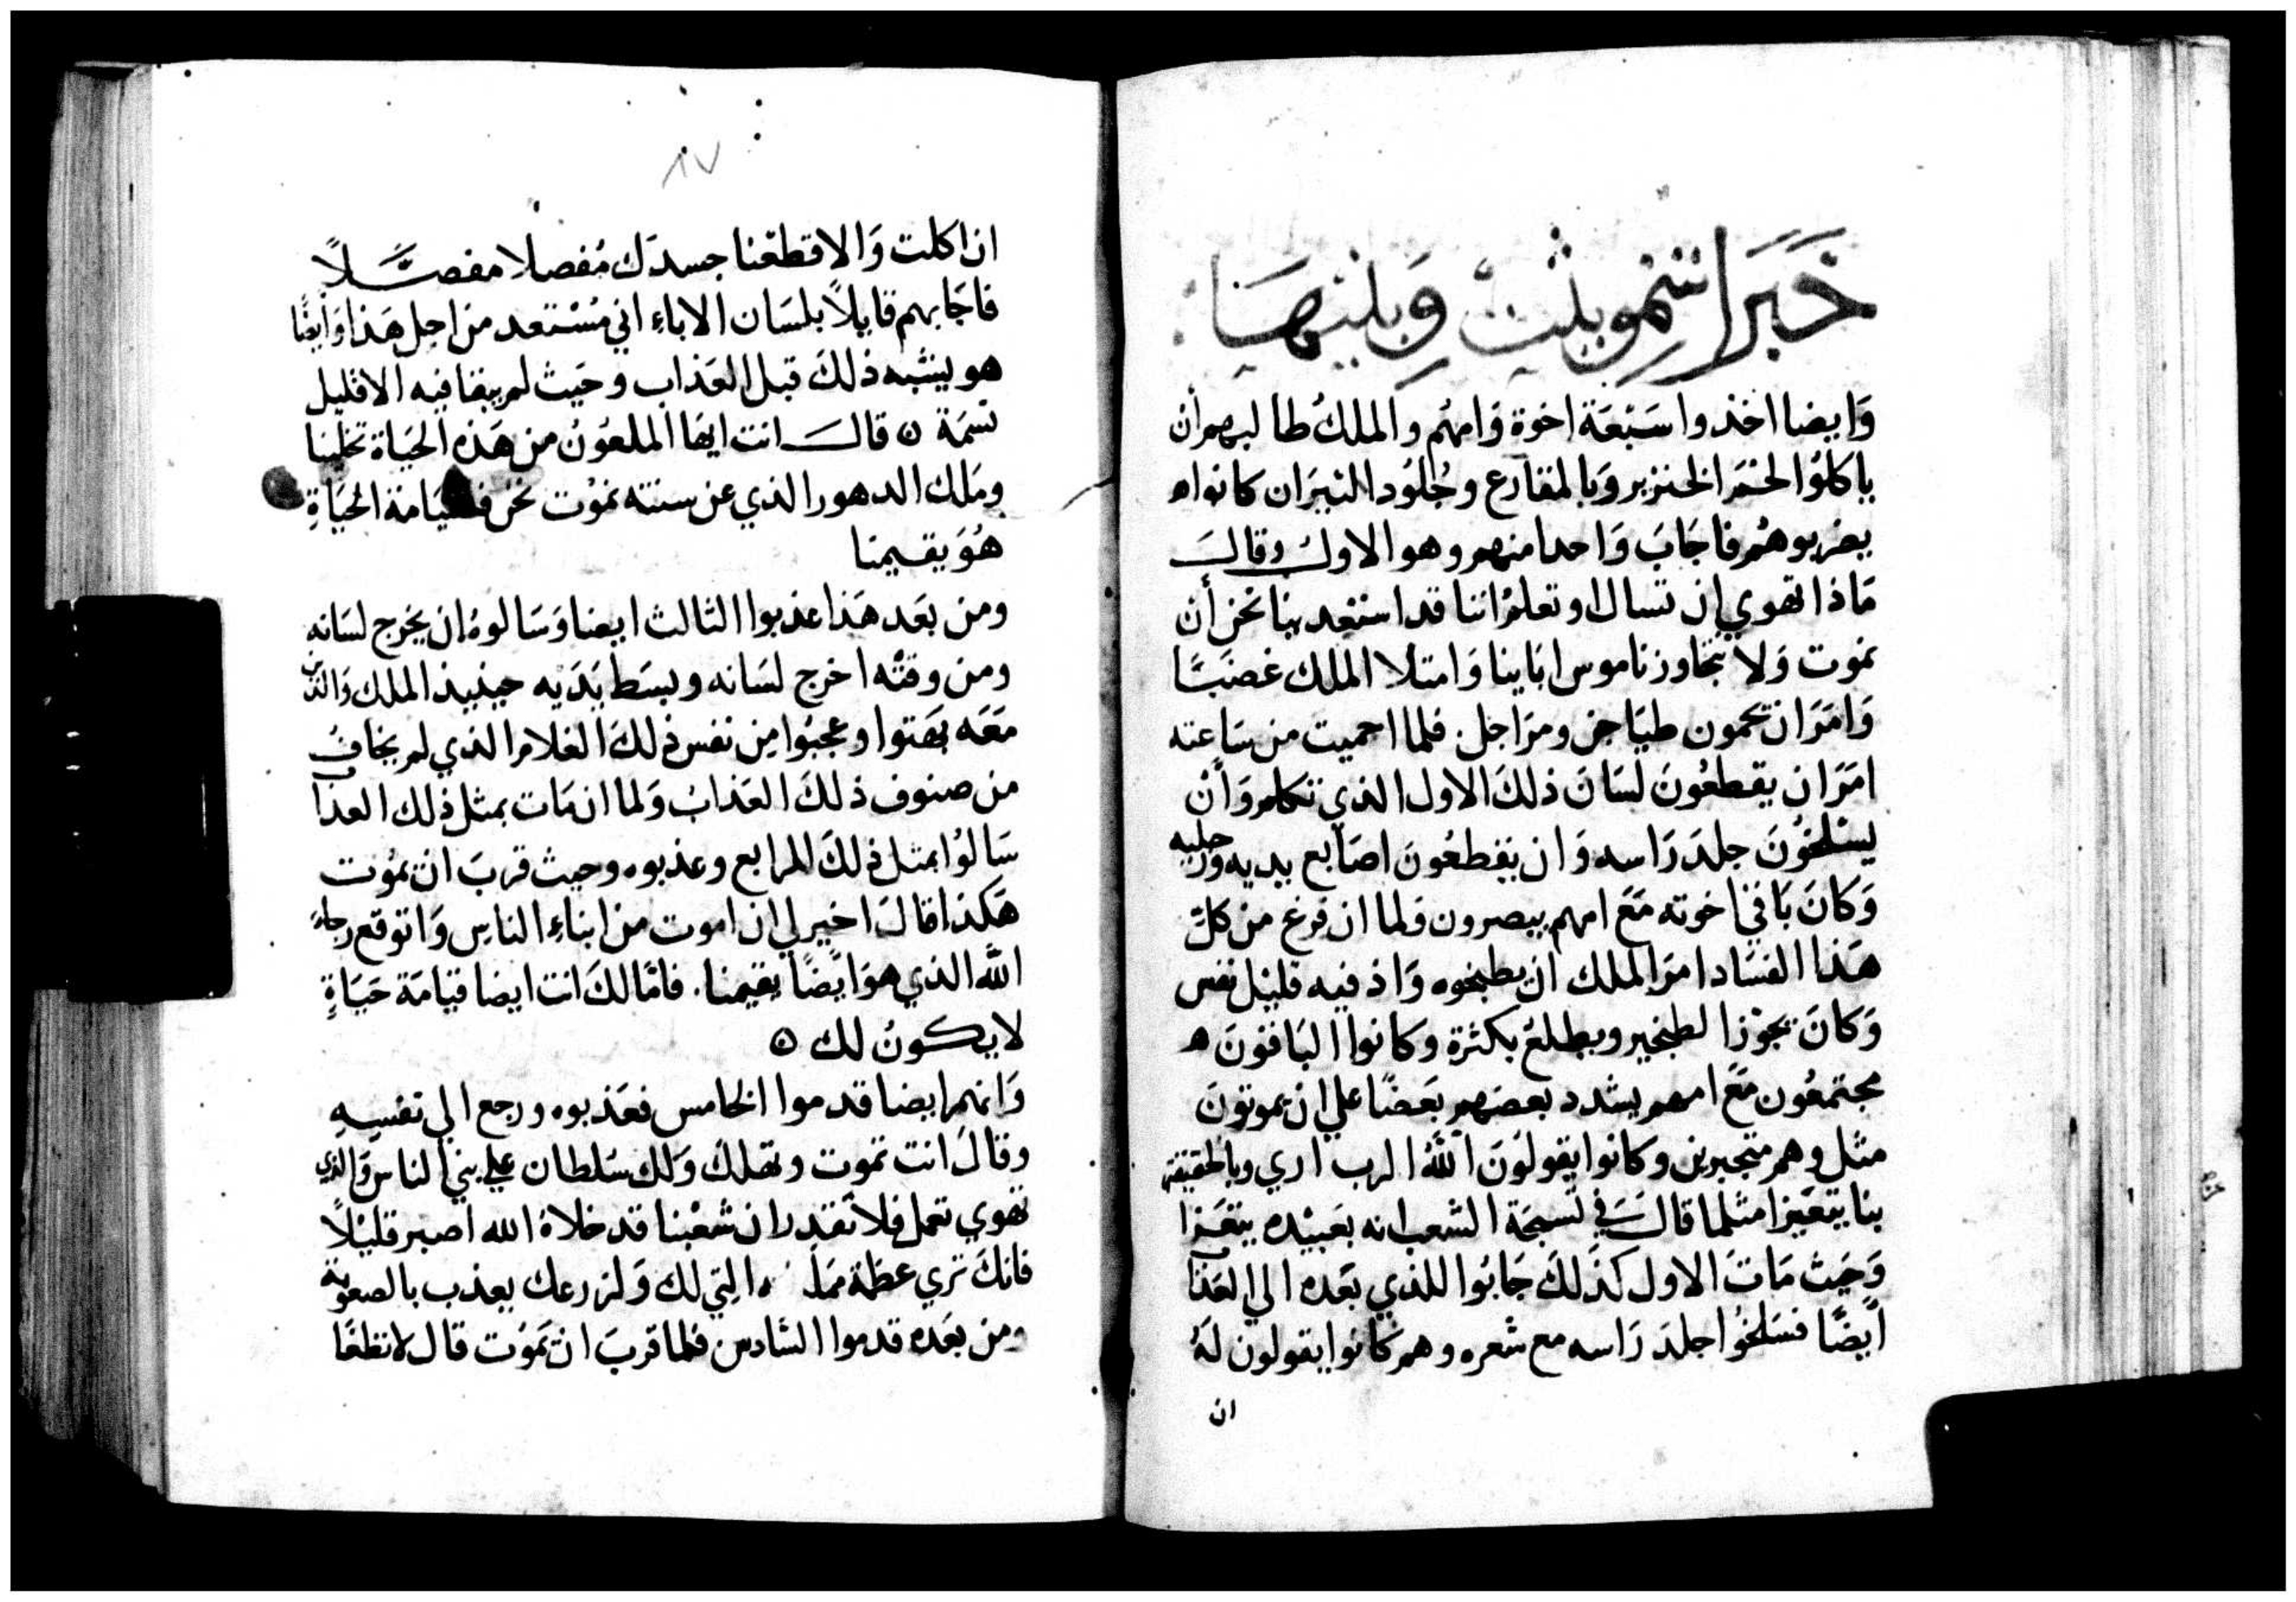 خَبَر اشمويليت وَبنيهَا
وَايضا اخذوا سَبْعَة اخوة وَامهُم والملكُ طالبهم أن
ياكلوُا لحمَ الخنزير وَبالمقارع وجُلوُد النيرَان كانوا ه
يضربوهُم فاجَابَ وَاحدا منهم وهو الاول وقالَ
مَاذا تهوي ان تسال او تعلم اننا قد استعد بنا نحن أن
نموت وَلا نتجَاوز ناموس ابَاينا وَامتلا الملك غضبًا
وَامَرَ ان تحمون طيَاجن ومرَاجل. فلما احميت من سَاعته
امَرَ ان يقطعُونَ لسَانَ ذلكَ الاول الذي تكلم وَأن
يسْلخوُنَ جلدَ رَاسه وَان يقطعُونَ اصَابع يديه ورجليه
وَكانَ بَاقي اخوته مَعَ امهم يبصرون ولما ان فرغ من كل
هَذا الفسَاد امَرَ الملك ان يطبخوه وَاذ فيه قليْل نفس
وَكانَ يجوْز الطبخير ويطلعُ بكثرة وكانوا البَاقونَ ه
مجتمعُون مَعَ امهم يشدد بعضهم بَعَضًا علي ان يموتونَ
مثل وهم متجبرين وكانوا يقولوُنَ اللهُ الرب اري وبالحقيقة
بنا يتعَيزا مثلما قالَ في تسبحَة الشعب انه بعَبيْده يتعَزا
وَحَيث مَاتَ الاول كذَلكَ جَابوُا للذي بَعَده الي العَذاب
ايَضًا فسَلخوُا جلدَ رَاسه مع شعره وهم كانوا يقولون لهُ
ان
٨٧
ان اكلت وَالا قطعْنا جسدَك مُفصلا مفصَلاً
فاجَابهم قايلاً بلسَان الاباءِ اني مُسْتعد من اجل هَذا وَايضًا
هو يشبه ذلكَ قبل العَذاب وحَيث لم يبقا فيه الا قليل
نسمَة ٥ قالَ انت ايها الملعوُنُ من هَذه الحَيَاة تخلينا
ومَلك الدهور الذي عن سنته نموْت نحن في قيَامَة الحَيَاةِ
هُوَ يقيمنا
ومن بَعَد هَذا عذبوا الثالث ايضا وَسَالوهُ ان يخرج لسَانه
ومن وقتْه اخرج لسَانه وبسَط يَدَيه حينيذ الملك وَالذين
مَعَه بهَتوا وعجبوُا مِن نفس ذلكَ الغلام الذي لم يخافُ
من صنوف ذلكَ العَذابُ وَلما ان مَات بمثل ذلك العذاب
سَالوُا بمثل ذلكَ الرابع وعذبوه وحيث قربَ ان يموُت
هَكذا قالَ اخير لي ان اموت من ابناءِ الناس وَاتوقع رجاءَ
اللّه الذي هوَ ايَضًا يقيمنا. فامَا لكَ انت ايضا قيامَة حَيَاةٍ
لا يكونُ لك ٥
وَانهم ايضا قدموا الخامس فعَذبوه ورجع الي نفسِهِ
وقالَ انت تموت وتهلكَ وَلك سَلطان علي بني الناس وَالذي
تهوي تعمل فلا تَقدر ان شعْبنا قد خلاهُ الله اصبر قليْلاً
فانكَ تري عظمة التي لك وَلزرعك يعذب بالصعوبة
ومن بعَده قدموا السَادس فلما قربَ ان يَموُت قال لا تطغَا